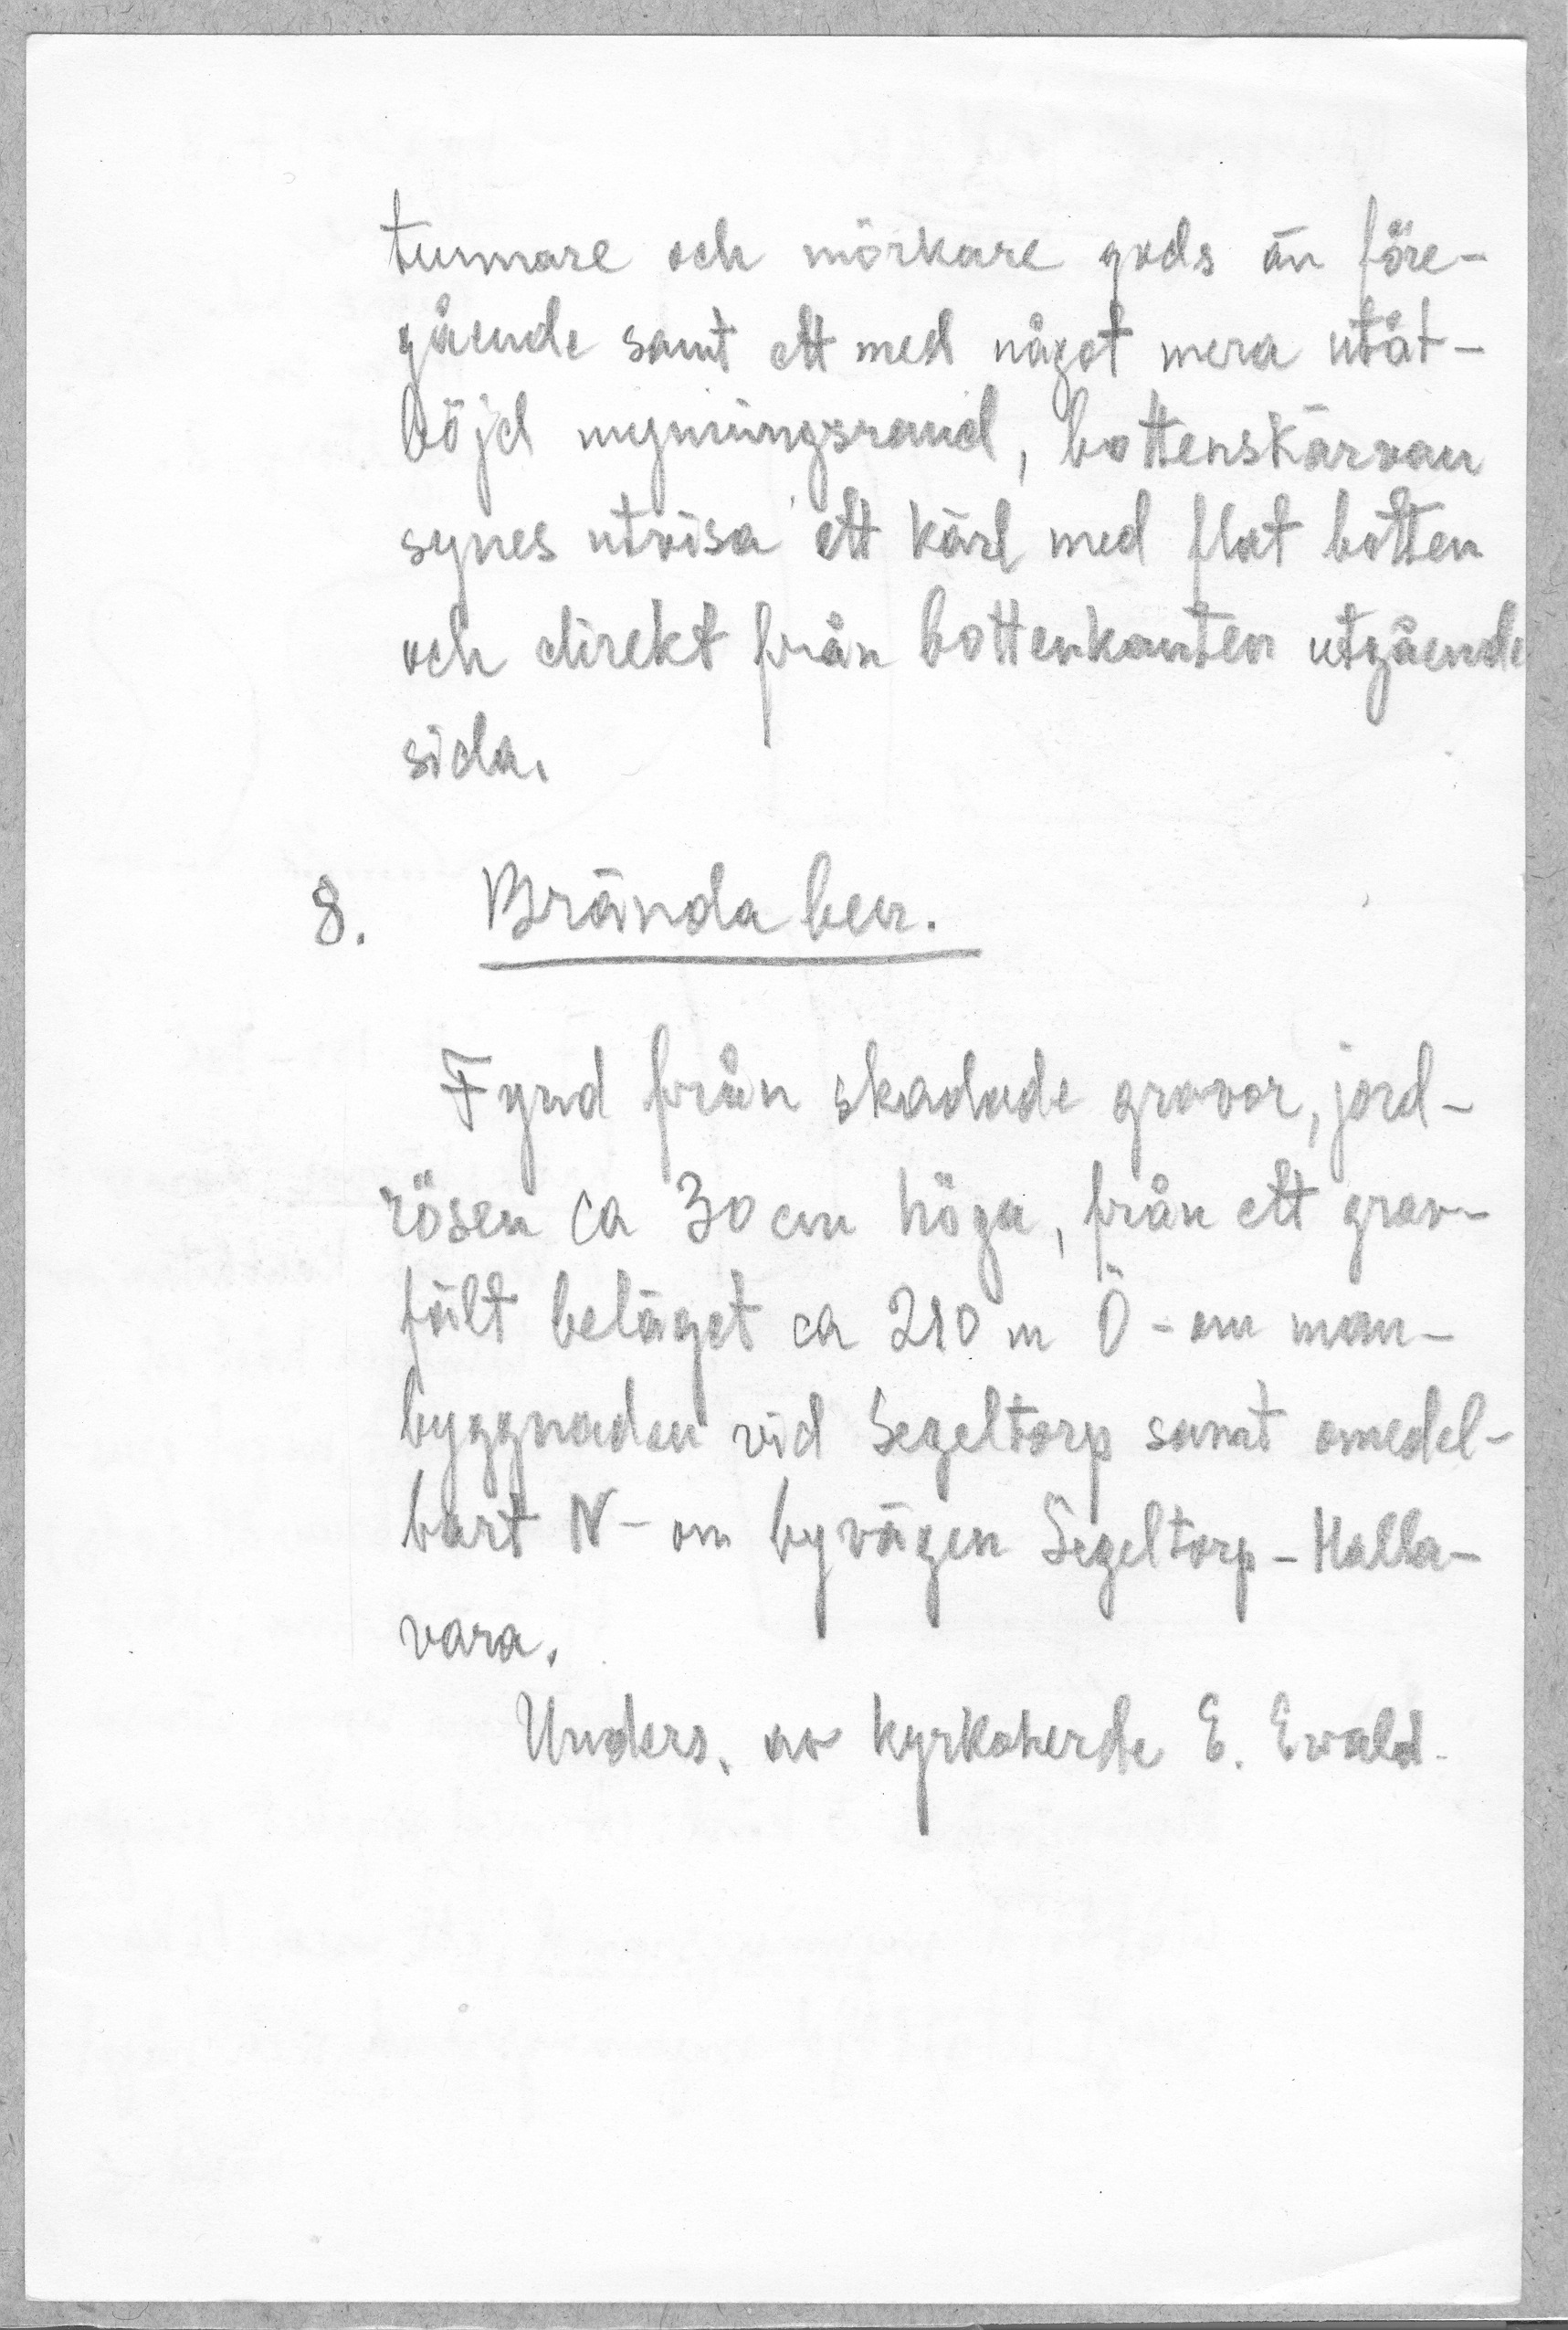 tunnare och mörkare gods än före-
gående samt ett med något mera utåt-
böjd mynningsrand, bottenskärvan
synes utvisa ett kärl med flat botten
och direkt från bottenkanten utgående
sida.
8. Brända ben.
Fynd från skadade gravar, jord-
rösen ca 30 cm höga, från ett grav-
fält beläget ca 210 m Ö-om man-
byggnaden vid Segeltorp samt omedel-
bart N-om byvägen Segeltorp-Halla-
vara.
Unders. av kyrkoherde E. Ewald.